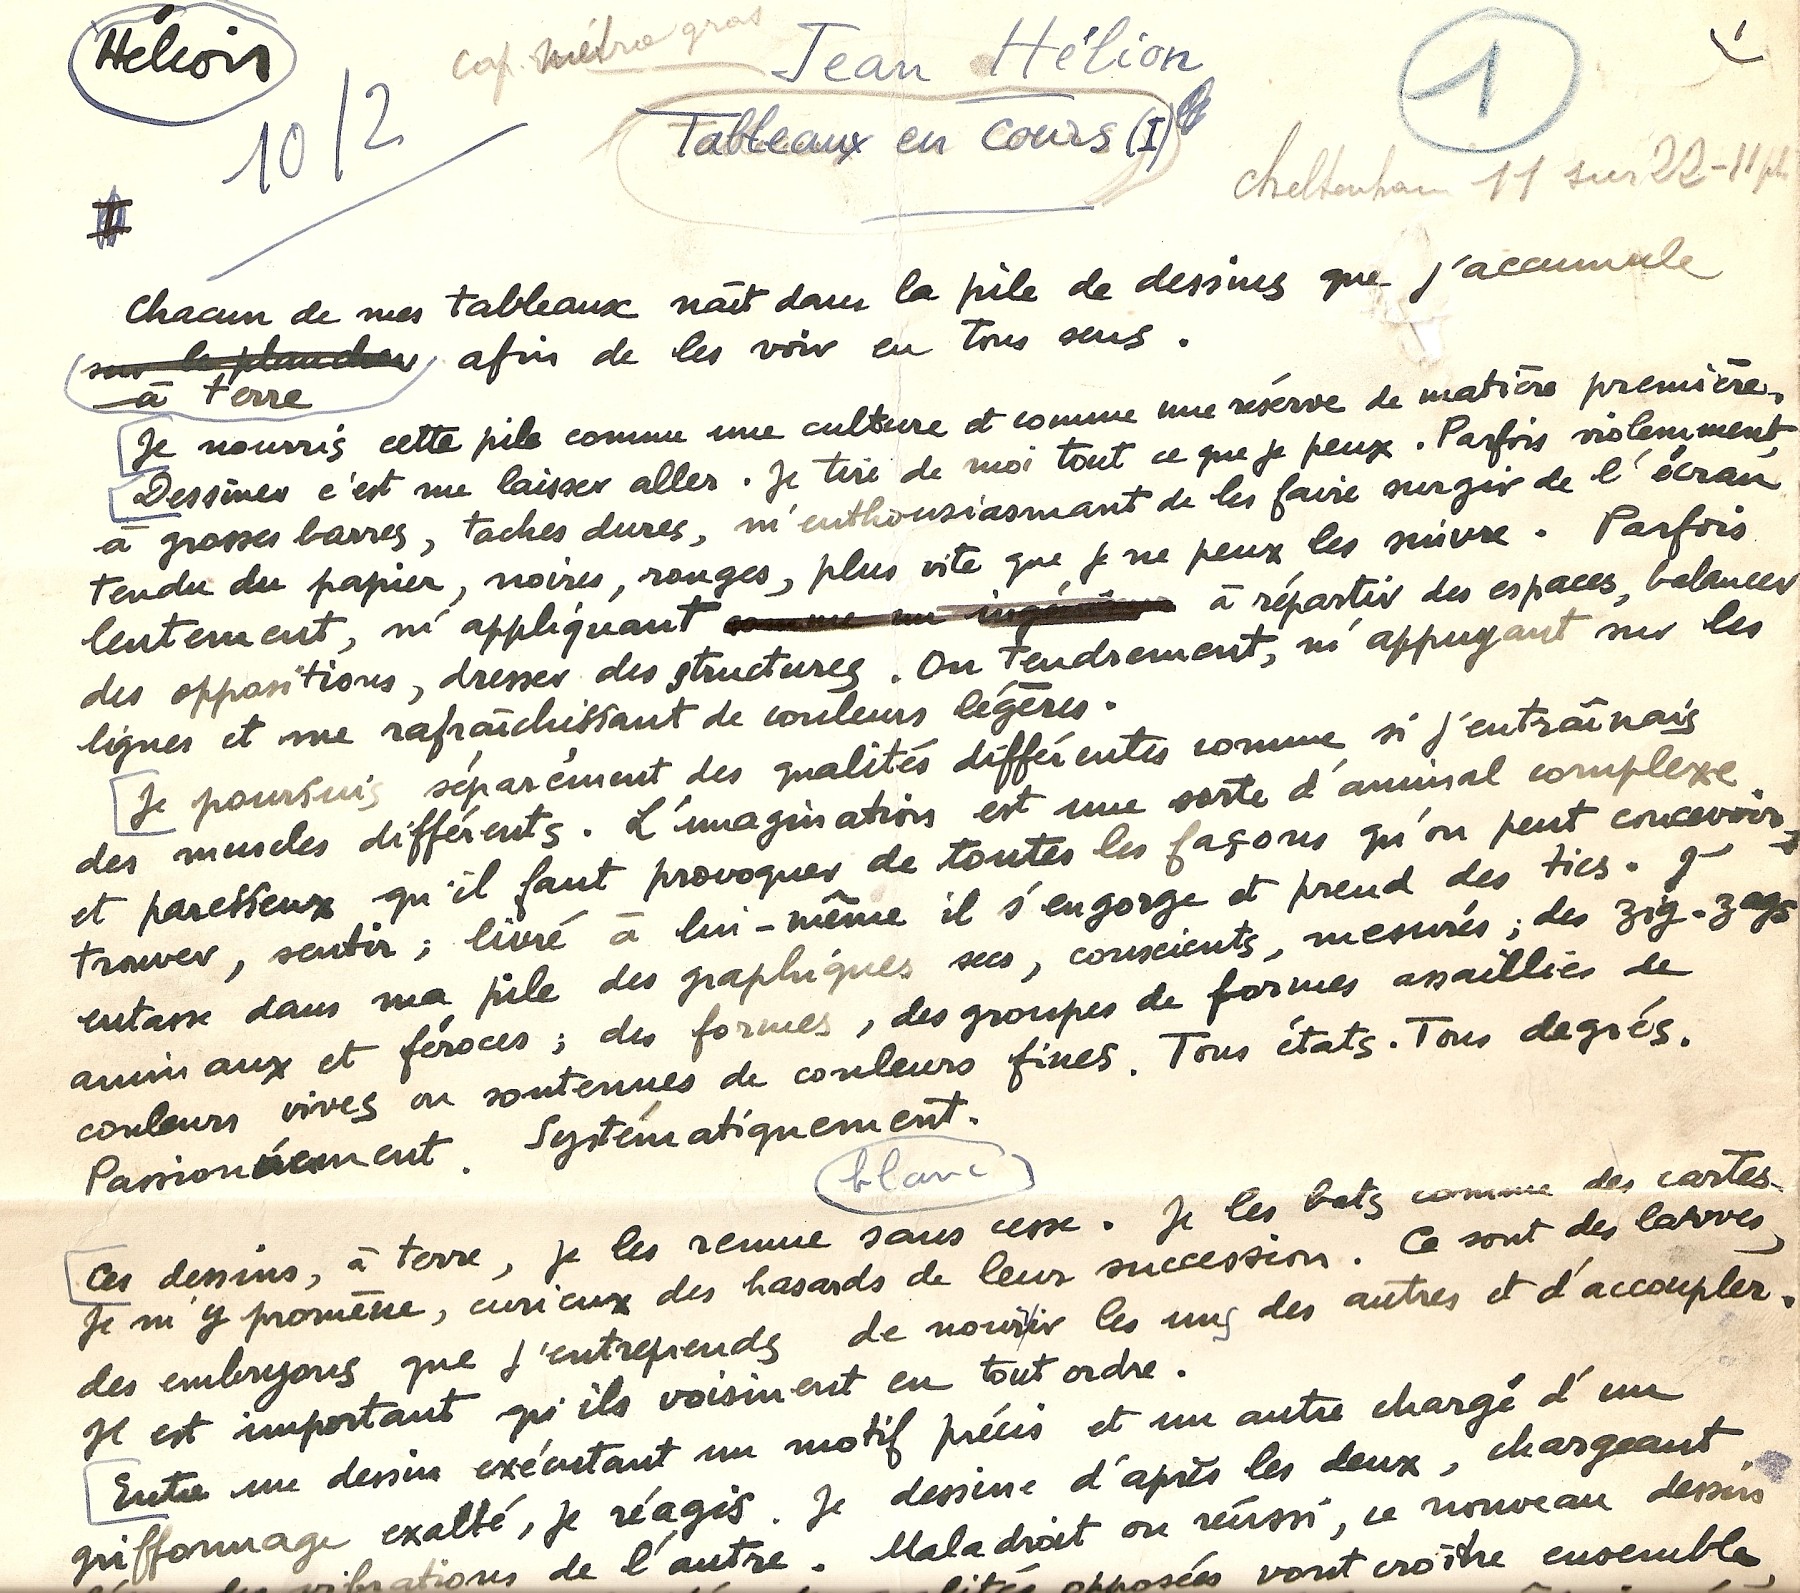 Hélion
cap. métro gras
Jean Hélion
1
10/2
Tableaux en cours (I)
Cheltenham 11 sur 22 - 11
Chacun de mes tableaux naît dans la pile de dessins que j'accumule
sur le plancher afin de les voir en tous sens.
à terre
Je nourris cette pile comme une culture et comme une réserve de matière première.
Dessiner c'est me laisser aller. Je tire de moi tout ce que je peux. Parfois violemment,
à grosses barres, taches dures, m'enthousiasmant de les faire surgir de l'écran
tendu du papier, noires, rouges, plus vite que je ne peux les suivre. Parfois
lentement, m'appliquant comme un ingénieur à répartir des espaces, balancer
des oppositions, dresser des structures. Ou tendrement, m'appuyant sur les
lignes et me rafraîchissant de couleurs légères.
Je poursuis séparément des qualités différentes comme si j'entraînais
des muscles différents. L'imagination est une sorte d'animal complexe
et paresseux qu'il faut provoquer de toutes les façons qu'on peut concevoir,
trouver, sentir ; livré à lui-même il s'engorge et prend des tics. J'
entasse dans ma pile des graphiques secs, conscients, mesurés ; des zig-zags
animaux et féroces ; des formes, des groupes de formes assaillies de
couleurs vives ou soutenues de couleurs fines. Tous états. Tous degrés.
Passionnément. Systématiquement.
blanc
Ces dessins, à terre, je les remue sans cesse. Je les bats comme des cartes.
Je m'y promène, curieux des hasards de leur succession. Ce sont des larves,
des embryons que j'entreprends de nourrir les uns des autres et d'accoupler.
Il est important qu'ils voisinent en tout ordre.
Entre un dessin exécutant un motif précis et un autre chargé d'un
griffonnage exalté, je réagis. Je dessine d'après les deux, chargeant
vibrations de l'autre. Maladroit ou réussi, ce nouveau dessin
opposées vont croître ensemble,